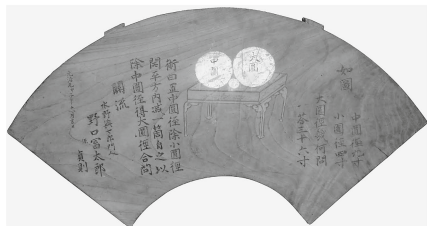 如圖
中圓徑九寸
小圓徑四寸
大圓徑幾何問
答三十六寸
大圓
中圓
術曰置中圓徑除小圓徑
開平方内減一箇自之以
除中圓徑得大圓徑合問
關流
門人
野口富太郎
貞則